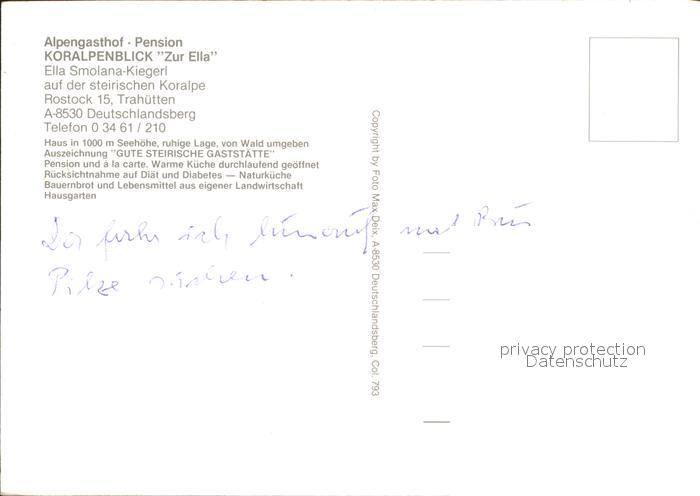 Alpengasthof · Pension
KORALPENBLICK "Zur Ella"
Ella Smolana-Kiegerl
auf der steirischen Koralpe
Rostock 15, Trahütten
A-8530 Deutschlandsberg
Telefon 0 34 61 / 210
Haus in 1000 m Seehöhe, ruhige Lage, von Wald umgeben
Auszeichnung "GUTE STEIRISCHE GASTSTÄTTE"
Pension und á la carte. Warme Küche durchlaufend geöffnet
Rücksichtnahme auf Diät und Diabetes — Naturküche
Bauernbrot und Lebensmittel aus eigener Landwirtschaft
Hausgarten
Da fahr ich hinauf und
Pilze suchen.
Copyright by Foto Max Deix, A-8530 Deutschlandsberg, Col. 793
privacy protection
Datenschutz